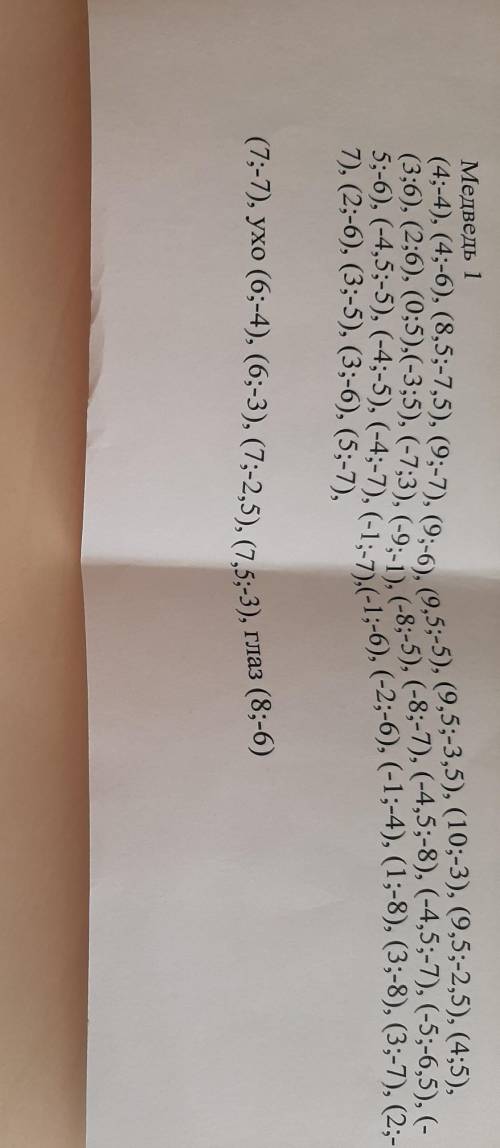 Медведь 1
(4;-4), (4;-6), (8,5;-7,5), (9;-7), (9;-6), (9,5;-5), (9,5;-3,5), (10;-3), (9,5;-2,5), (4;5),
(3;6), (2;6), (0;5),(-3;5), (-7;3), (-9;-1), (-8;-5), (-8;-7), (-4,5;-8), (-4,5;-7), (-5;-6,5), (-
5;-6), (-4,5;-5), (-4;-5), (-4;-7), (-1;-7),(-1;-6), (-2;-6), (-1;-4), (1;-8), (3;-8), (3;-7), (2;-
7), (2;-6), (3;-5), (3;-6), (5;-7),
(7;-7), ухо (6;-4), (6;-3), (7;-2,5), (7,5;-3), глаз (8;-6)